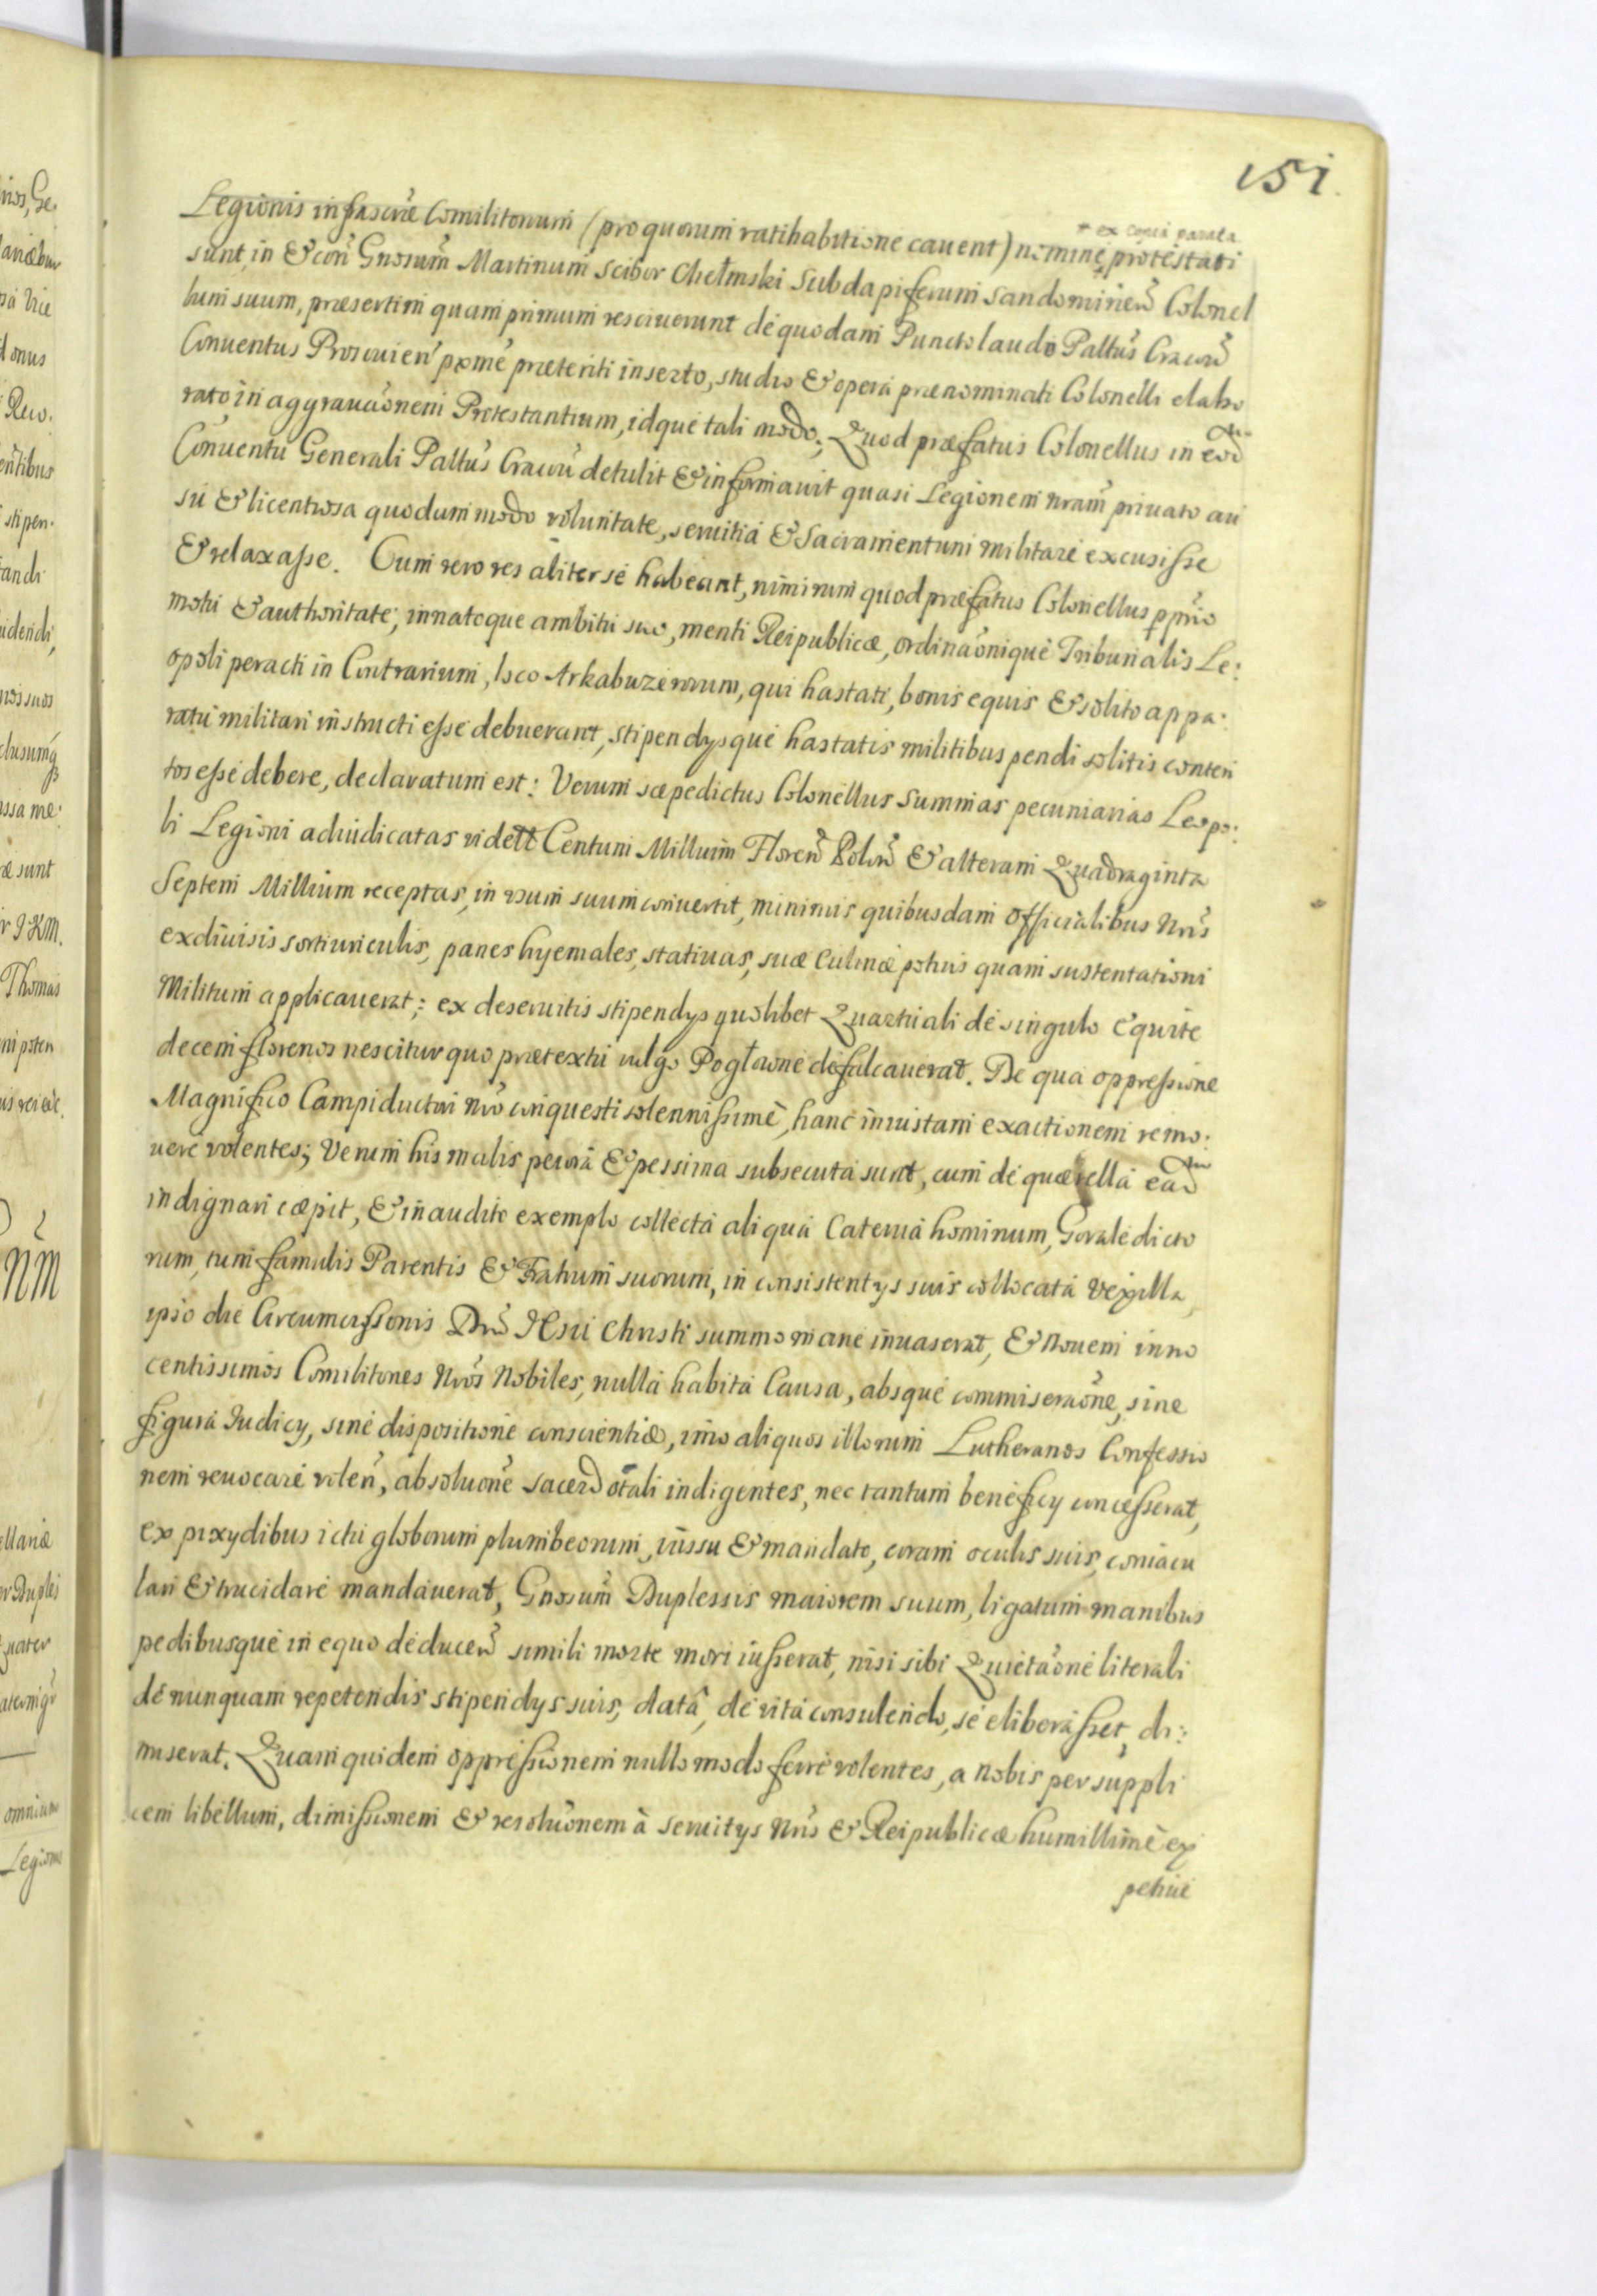 151.
Legionis infrascrỉe Comilitonum (pro quorum ratihabitione cauent) nomine protestati
+ ex copia parata
sunt, in & con̉ Gnosum̉ Martinum Scibor Chełmski Subdapiferum Sandomirien̉ Colonel
lum suum, præsertim quam primum resciuerunt de quodam Puncto laudo Pallus̉ Cracoủ
Conuentus Proscouien̉ pxme̓ præteriti inserto, studio & opera prænominati Colonelli elabo
rato in aggrauao̓nem Protestantium, idque tali modo: Quod præfatus Colonellus in eod
Conuentu Generali Pallus̉ Cracoủ detulit & informauit quasi Legionem nram̉ priuato au
su & licentiosa quodum modo voluntate, seruitia & Sacramentum militare excusisse
& relaxasse. Cum vero res aliter se habeant, nimirum quod præfatus Colonellus pprio
motu & authoritate, innatoque ambitu suo, menti Reipublicæ, ordinao̓nique Tribunalis Le:
opoli peracti in Contrarium, loco Arkabuzerorum, qui hastati, bonis equis & solito appa:
ratu militari instructi esse debuerant, stipendysque hastatis militibus pendi solitis conten
tos esse debere, declaratum est: Verum sæpedictus Colonellus Summas pecuniarias Leopo:
li Legioni adiudicatas vidett Centum Millium Floren̉ Polon̉ & alteram Quadraginta
Septem Millium receptas, in usum suum conuertit, minimis quibusdam Officialibus Nris̉
ex diuisis sortiunculis, panes hyemales, statiuas, suæ Culinæ potius quam sustentationi
Militum applicauerat; ex deseruitis stipendys quolibet Quartuali de singulo Equite
decem florenos nescitur quo prætextu vulgo Pogłowne defalcauerat. De qua oppressione
Magnifico Campiductori nro̓ conquesti solennissime, hanc iniustam exactionem remo:
uere volentes; Verum his malis peiora & pessima subsecuta sunt, cum de quærella ead
indignari cæpit, & inaudito exemplo collecta aliqua Caterua hominum, Gorale dicto
rum, tum famulis Parentis & Fratrum suorum, in consistentys suis collocata Vexilla,
ipso die Circumcissionis Dni̓ IEsu Christi summo mane inuaserat, & Nouem inno
centissimos Comilitones Nros̉ Nobiles, nulla habita Causa, absque commiserao̓ne, sine
figura Iudicy, sine dispositione conscientiæ, imo aliquos illorum Lutheranos Confessio
nem reuocare volen̉, absoluo̓ne sacerdotali indigentes, nec tantum beneficy concesserat,
ex pixydibus ictu globorum plumbeorum, iussu & mandato, coram oculis suis, coniacu
lari & trucidare mandauerat, Gnosum̉ Duplessis maiorem suum, ligatum manibus
pedibusque in equo deducen̉ simili morte mori iusserat, nisi sibi Quietao̓ne literali
de nunquam repetendis stipendys suis, data, de vita consulendo, se eliberasset, di:
miserat. Quam quidem oppressionem nullo modo ferre volentes, a nobis per suppli
cem libellum, dimissionem & resoluo̓nem à seruitys Nris̉ & Reipublicæ humillime ex
petiue